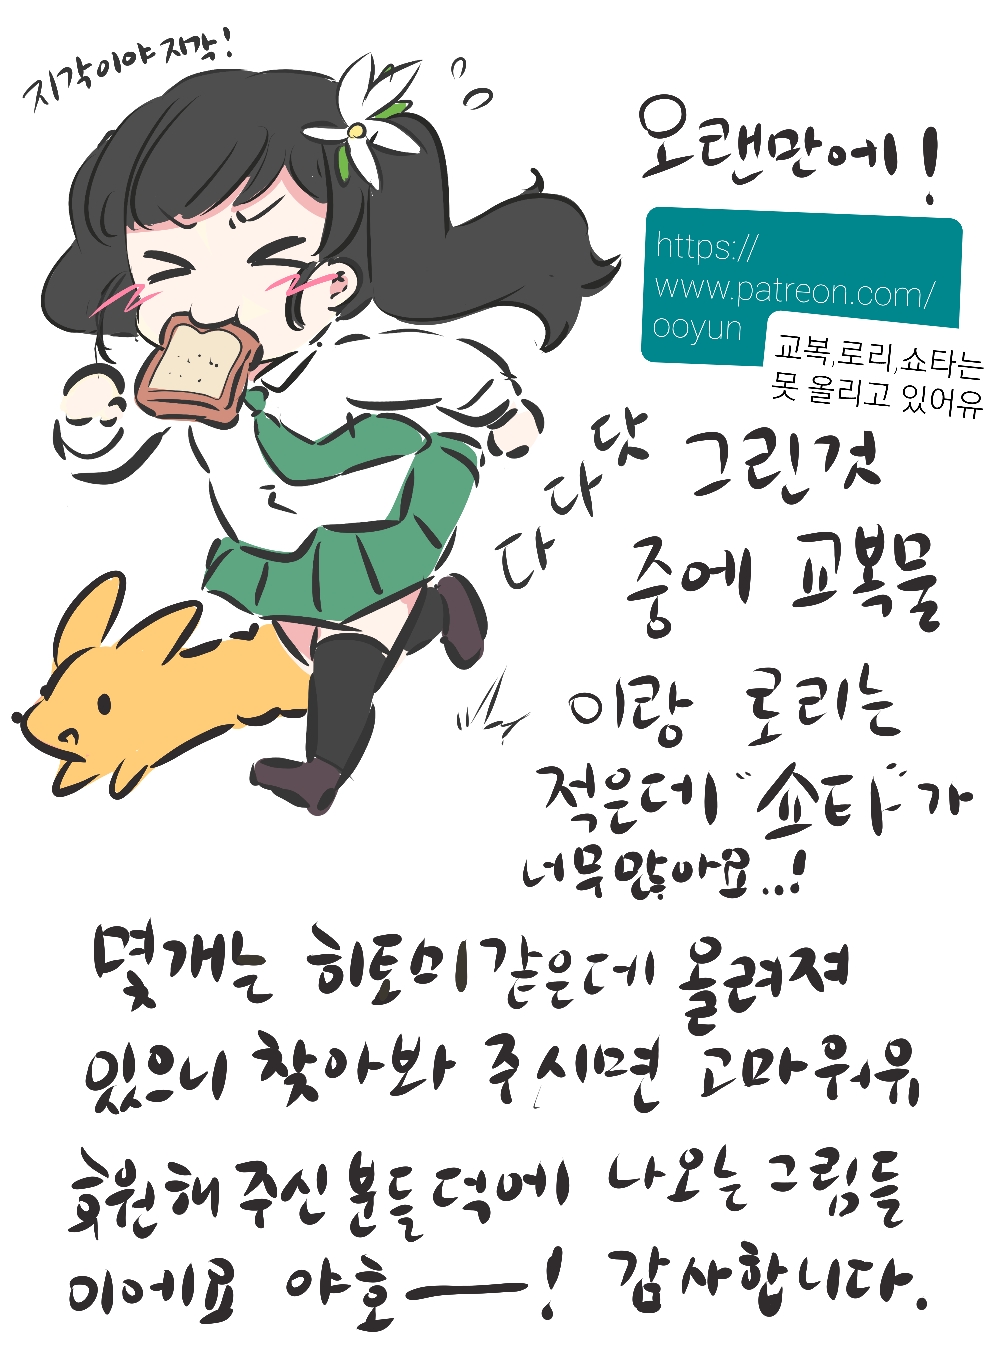 지각이야 지각!
오랜만에!
https://
www.patreon.com/
ooyun
교복,로리,쇼타는
못 올리고 있어유
다 다 닷
그린것
중에 교복물
이랑 로리는
적은데 "쇼타"가
너무 많아요...!
몇개는 히토미 같은데 올려져
있으니 찾아봐 주시면 고마워유
효원해 주신 분들 덕에 나오는 그림들
이에요 야호ー! 감사합니다.